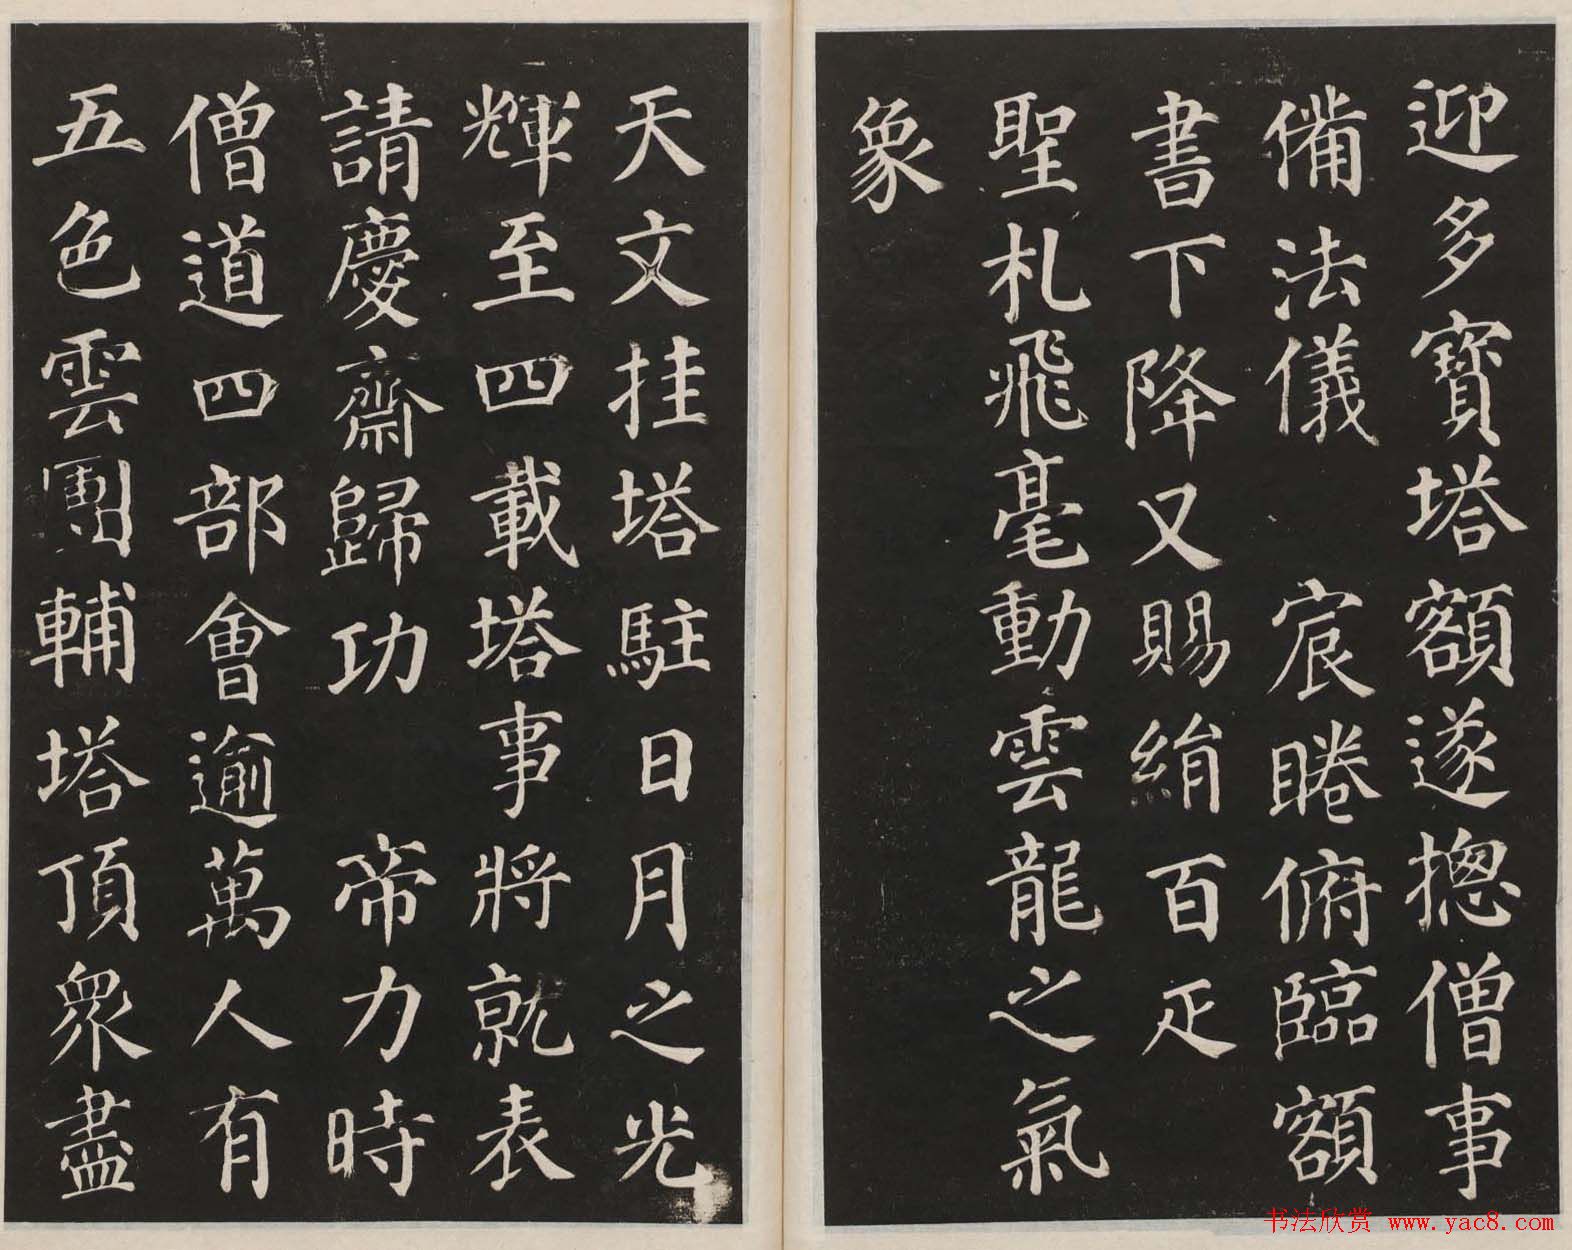 迎多寶塔額遂揔僧事
備法儀　宸睠俯臨額
書下降又賜絹百疋
聖札飛毫動雲龍之氣
象
天文挂塔駐日月之光
輝至四載塔事將就表
請慶齋歸功　帝力時
僧道四部會逾萬人有
五色雲團輔塔頂衆盡
书法欣赏 www.yac8.com